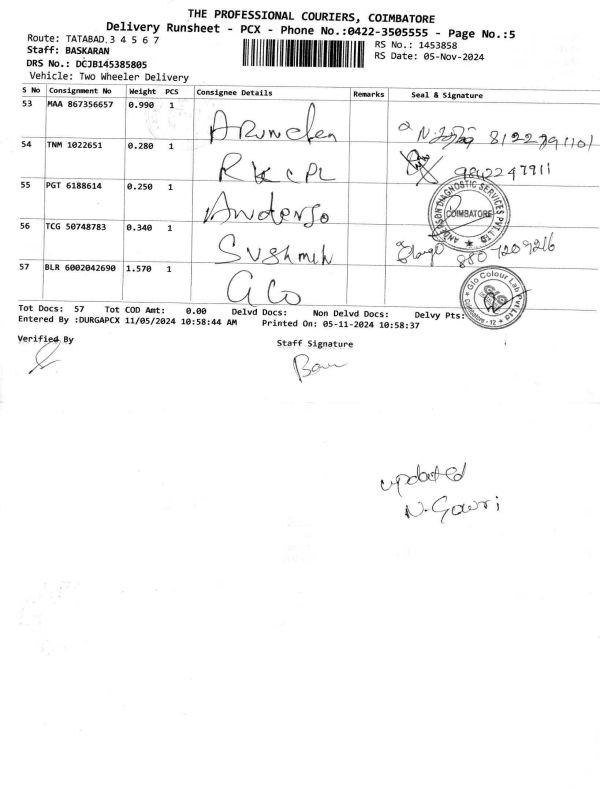 THE PROFESSIONAL COURIERS, COIMBATORE
Delivery Runsheet - PCX - Phone No.:0422-3505555 - Page No.:5
Route: TATABAD.3 4 5 6 7
RS No.: 1453858
Staff: BASKARAN
RS Date: 05-Nov-2024
DRS No.: DCJB145385805
Vehicle: Two Wheeler Delivery
S No Consignment No Weight PCS Consignee Details Remarks Seal & Signature
53 MAA 867356657 0.990 1
54 TNM 1022651 0.280 1 RKCPL 9842247911
55 PGT 6188614 0.250 1 Anderso
ANDERSON DIAGNOSTIC SERVICES PVT.LTD COIMBATORE
56 TCG 50748783 0.340 1 Sushmih 8807209216
57 BLR 6002042690 1.570 1 GCo
Glo Colour Lab Pvt Ltd Coimbatore - 12
Tot Docs: 57 Tot COD Amt: 0.00 Delvd Docs: Non Delvd Docs: Delvy Pts:
Entered By :DURGAPCX 11/05/2024 10:58:44 AM Printed On: 05-11-2024 10:58:37
Verified By
Staff Signature
updated
N. Gowri